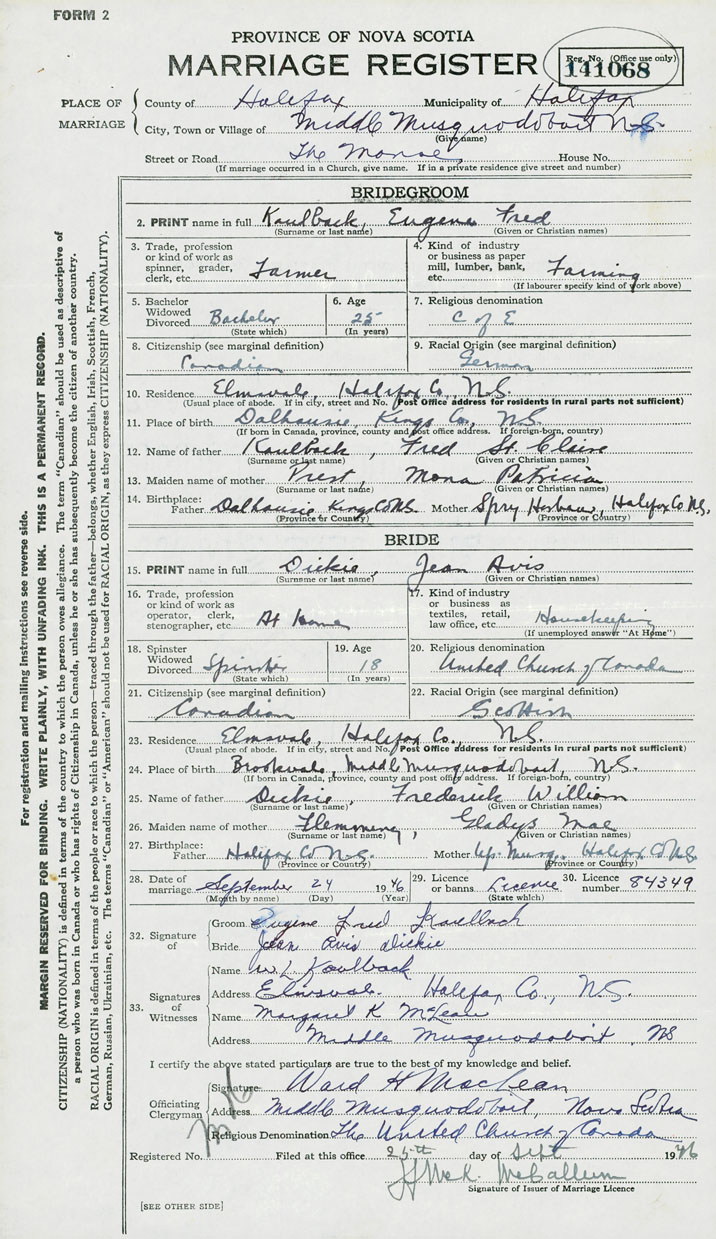 FORM 2
PROVINCE OF NOVA SCOTIA
MARRIAGE REGISTER
Reg. No. (Office use only)
141068
PLACE OF MARRIAGE
County of Halifax Municipality of Halifax
City, Town or Village of Middle Musquodoboit N.S.
(Give name)
Street or Road The Manse House No.
(If marriage occurred in a Church, give name. If in a private residence give street and number)
BRIDEGROOM
2. PRINT name in full Kaulback, Eugene Fred
(Surname or last name) (Given or Christian names)
3. Trade, profession or kind of work as spinner, grader, clerk, etc. Farmer
4. Kind of industry or business as paper mill, lumber, bank, etc. Farming
(If labourer specify kind of work above)
5. Bachelor Widowed Divorced Bachelor
(State which)
6. Age 25
(In years)
7. Religious denomination
C of E
8. Citizenship (see marginal definition)
Canadian
9. Racial Origin (see marginal definition)
German
10. Residence Elmsvale, Halifax Co., N.S.
(Usual place of abode. If in city, street and No. Post Office address for residents in rural parts not sufficient)
11. Place of birth Dalhousie, Kings Co., N.S.
(If born in Canada, province, county and post office address. If foreign-born, country)
12. Name of father Kaulback, Fred St. Claire
(Surname or last name) (Given or Christian names)
13. Maiden name of mother Mona Patricia
(Surname or last name) (Given or Christian names)
14. Birthplace:
Father Dalhousie Kings Co N.S. Mother Spry Harbour, Halifax Co N.S.
(Province or Country) (Province or Country)
BRIDE
15. PRINT name in full Dickie, Jean Avis
(Surname or last name) (Given or Christian names)
16. Trade, profession or kind of work as operator, clerk, stenographer, etc. At home
17. Kind of industry or business as textiles, retail, law office, etc. Housekeeping
(If unemployed answer "At Home")
18. Spinster Widowed Divorced Spinster
(State which)
19. Age 18
(In years)
20. Religious denomination
United Church of Canada
21. Citizenship (see marginal definition)
Canadian
22. Racial Origin (see marginal definition)
Scottish
23. Residence Elmsvale, Halifax Co., N.S.
(Usual place of abode. If in city, street and No. Post Office address for residents in rural parts not sufficient)
24. Place of birth Brookvale, Middle Musquodoboit, N.S.
(If born in Canada, province, county and post office address. If foreign-born, country)
25. Name of father Dickie, Frederick William
(Surname or last name) (Given or Christian names)
26. Maiden name of mother Gladys Mae
(Surname or last name) (Given or Christian names)
27. Birthplace:
Father Halifax Co N.S. Mother Up. Musq. Halifax Co N.S.
(Province or Country) (Province or Country)
28. Date of marriage September 24 1946
(Month by name) (Day) (Year)
29. Licence or banns Licence
(State which)
30. Licence number 84349
32. Signature of
Groom Eugene Fred Kaulback
Bride Jean Avis Dickie
33. Signatures of Witnesses
Name W. L. Kaulback
Address Elmsvale Halifax Co., N.S.
Name Margaret K McLean
Address Middle Musquodoboit, NS
I certify the above stated particulars are true to the best of my knowledge and belief.
Officiating Clergyman
Signature Ward H MacLean
Address Middle Musquodoboit, Nova Scotia
Religious Denomination The United Church of Canada
Registered No. Filed at this office 25th day of Sept 1946
McCallum
Signature of Issuer of Marriage Licence
[SEE OTHER SIDE]
For registration and mailing instructions see reverse side.
MARGIN RESERVED FOR BINDING. WRITE PLAINLY, WITH UNFADING INK. THIS IS A PERMANENT RECORD.
CITIZENSHIP (NATIONALITY) is defined in terms of the country to which the person owes allegiance. The term "Canadian" should be used as descriptive of
a person who was born in Canada or who has rights of Citizenship in Canada, unless he or she has subsequently become the citizen of another country.
RACIAL ORIGIN is defined in terms of the people or race to which the person—traced through the father—belongs, whether English, Irish, Scottish, French,
German, Russian, Ukrainian, etc. The terms "Canadian" or "American" should not be used for RACIAL ORIGIN, as they express CITIZENSHIP (NATIONALITY).